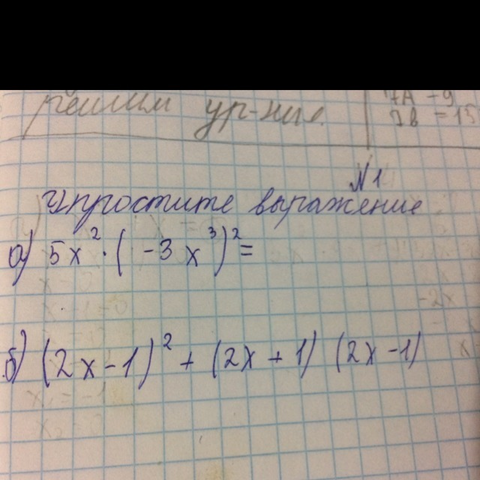 решим ур-ние.
7A + 9
7B = 15
N 1
Упростите выражение
а) 5x²·(-3x³)²=
б) (2x-1)² + (2x+1) (2x-1)